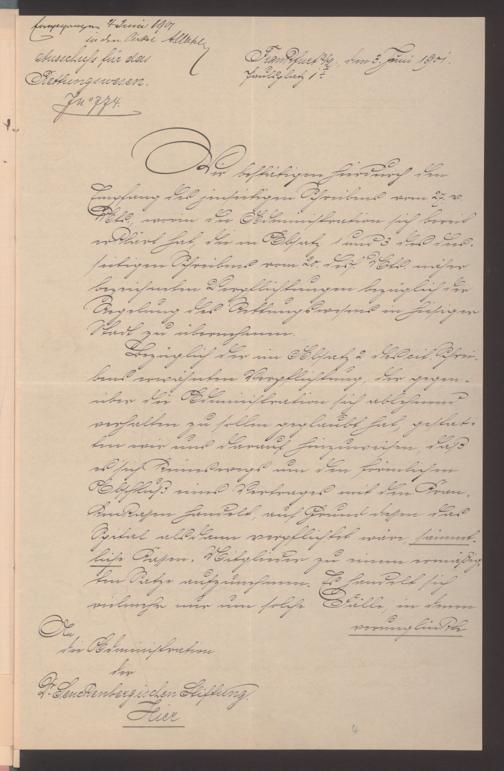 Eingegangen 4 Juni 1901
in den Cirkel
Ausschuß für das
Rettungswesen.
J. No 774.
Frankfurt a/M., den 3. Juni 1901.
Paulsplatz 1
Wir bestätigen hierdurch den
Empfang des jenseitigen Schreibens vom 27. v.
Mts., worin die Administration sich bereit
erklärt hat, die in Absatz 1 und 3 des dies-
seitigen Schreibens vom 20. des Mts. näher
bezeichneten Verpflichtungen bezüglich der
Regelung des Rettungswesens in hiesiger
Stadt zu übernehmen.
Bezüglich der im Absatz 2 des cit. Schrei-
bens erwähnten Verpflichtung, der gegen-
über die Administration sich ablehnend
verhalten zu sollen geglaubt hat, gestat-
ten wir uns darauf hinzuweisen, daß
es sich keineswegs um den förmlichen
Abschluß eines Vertrages mit den Kran-
kenkassen handelt, auf Grund dessen das
Spital alsdann verpflichtet wäre sämmt-
liche Kassen-Mitglieder zu einem ermäßig-
ten Satze aufzunehmen. Es handelt sich
vielmehr nur um solche Fälle, in denen
verunglückte
An
die Administration
der
Dr. Senckenbergischen Stiftung.
Hier